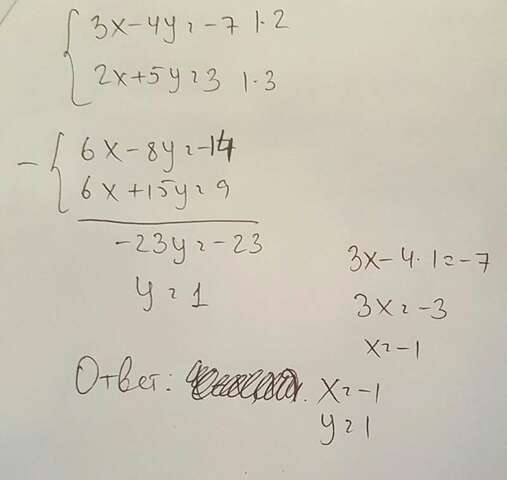 3x-4y=-7 |·2
2x+5y=3 |·3
- 6x-8y=-14
6x+15y=9
-23y=-23
y=1
3x-4·1=-7
3x=-3
x=-1
Ответ: x=-1
y=1